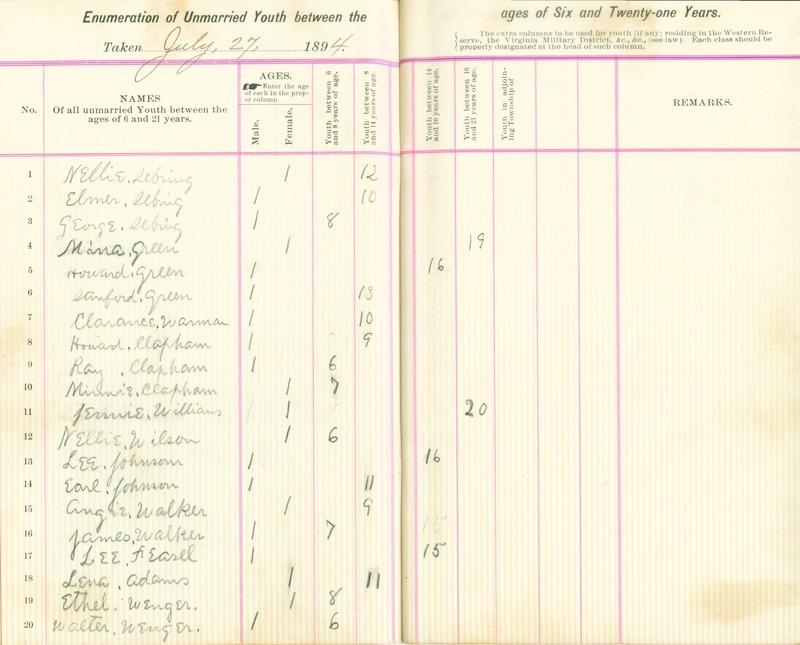 Enumeration of Unmarried Youth between the ages of Six and Twenty-one Years.
Taken July, 27, 1894.
The extra columns to be used for youth (if any; residing in the Western Re-
serve, the Virginia Military District, &c., &c., (see law). Each class should be
properly designated at the head of such column.
No.
NAMES
Of all unmarried Youth between the
ages of 6 and 21 years.
AGES.
Enter the age
of each in the prop-
er column.
Male.
Female.
Youth between 6
and 8 years of age.
Youth between 8
and 14 years of age.
Youth between 14
and 16 years of age.
Youth between 16
and 21 years of age.
Youth in adjoin-
ing Township of
REMARKS.
1 Nellie, Sebring 1 12
2 Elmer, Sebing 1 10
3 George, Sebing 1 8
4 Mina, Green 1 19
5 Howard, Green 1 16
6 Sanford, Green 1 13
7 Clarance, Warman 1 10
8 Howard, Clapham 1 9
9 Ray, Clapham 1 6
10 Minnie, Clapham 1 7
11 Jennie, Willians 1 20
12 Nellie, Wilson 1 6
13 Lee, Johnson 1 16
14 Earl, Johnson 1 11
15 Angie, Walker 1 9
16 James, Walker 1 7
17 Lee, Feasel 1 15
18 Lena, Adams 1 11
19 Ethel, Wenger. 1 8
20 Walter, Wenger. 1 6